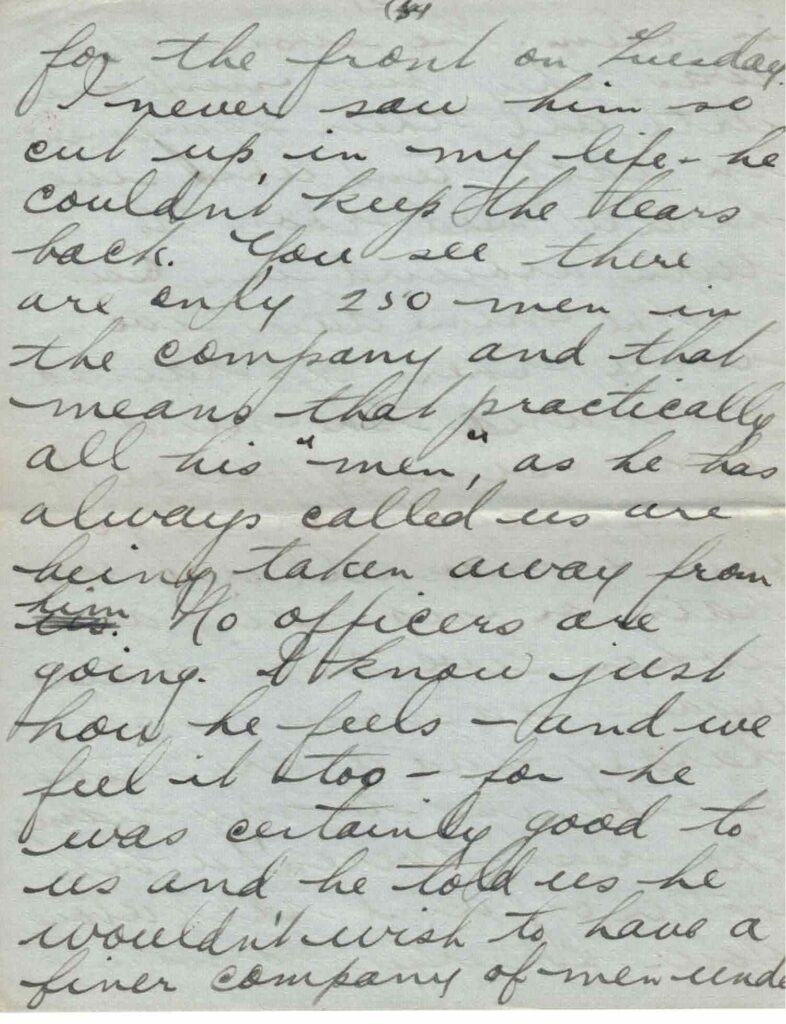 for the front on Tuesday.
I never saw him so
cut up in my life - he
couldn't keep the tears
back. You see there
are only 250 men in
the company and that
means that practically
all his "men", as he has
always called us are
being taken away from
him No officers are
going. I know just
how he feels - and we
feel it too - for he
was certainly good to
us and he told us he
wouldn't wish to have a
finer company of men unde